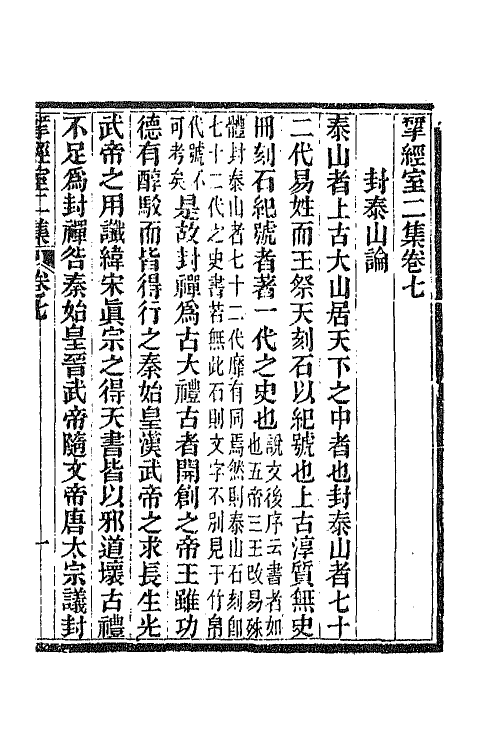 揅經室二集卷七
封泰山論
泰山者上古大山居天下之中者也封泰山者七十
二代易姓而王祭天刻石以紀號也上古淳質無史
冊刻石紀號者著一代之史也說文後序云書者如
也五帝三王改易殊
體封泰山者七十二代靡有同焉然則泰山石刻卽
七十二代之史書若無此石則文字不別見于竹帛
代號不
可考矣是故封禪爲古大禮古者開創之帝王雖功
德有醇駁而皆得行之秦始皇漢武帝之求長生光
武帝之用讖緯宋眞宗之得天書皆以邪道壞古禮
不足爲封禪咎秦始皇晉武帝隨文帝唐太宗議封
揅經室二集 卷七 一